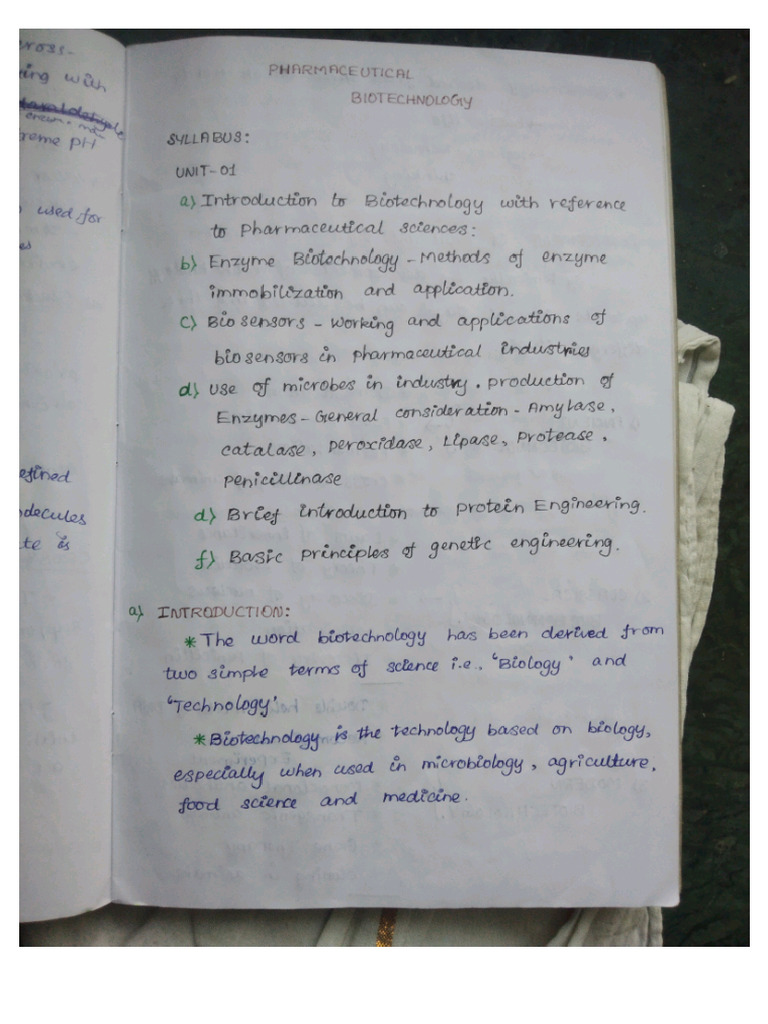 PHARMACEUTICAL
BIOTECHNOLOGY
SYLLABUS:
UNIT-01
a) Introduction to Biotechnology with reference
to pharmaceutical sciences:
b) Enzyme Biotechnology - Methods of enzyme
immobilization and application.
c) Bio sensors - working and applications of
bio sensors in pharmaceutical industries
d) Use of microbes in industry. production of
Enzymes - General consideration - Amylase,
catalase, peroxidase, Lipase, Protease,
penicillinase
d) Brief introduction to protein Engineering.
f) Basic principles of genetic engineering.
a) INTRODUCTION:
* The word biotechnology has been derived from
two simple terms of science i.e., 'Biology' and
'Technology'
* Biotechnology is the technology based on biology,
especially when used in microbiology, agriculture,
food science and medicine.
ross-
ing with
reme pH
used for
es
efined
olecules
te is